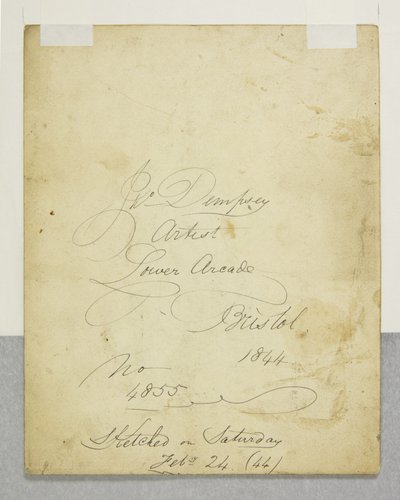 Jno Dempsey
Artist
Lower Arcade
Bristol.
1844
No
4855
Sketched on Saturday
Feby 24 (44)